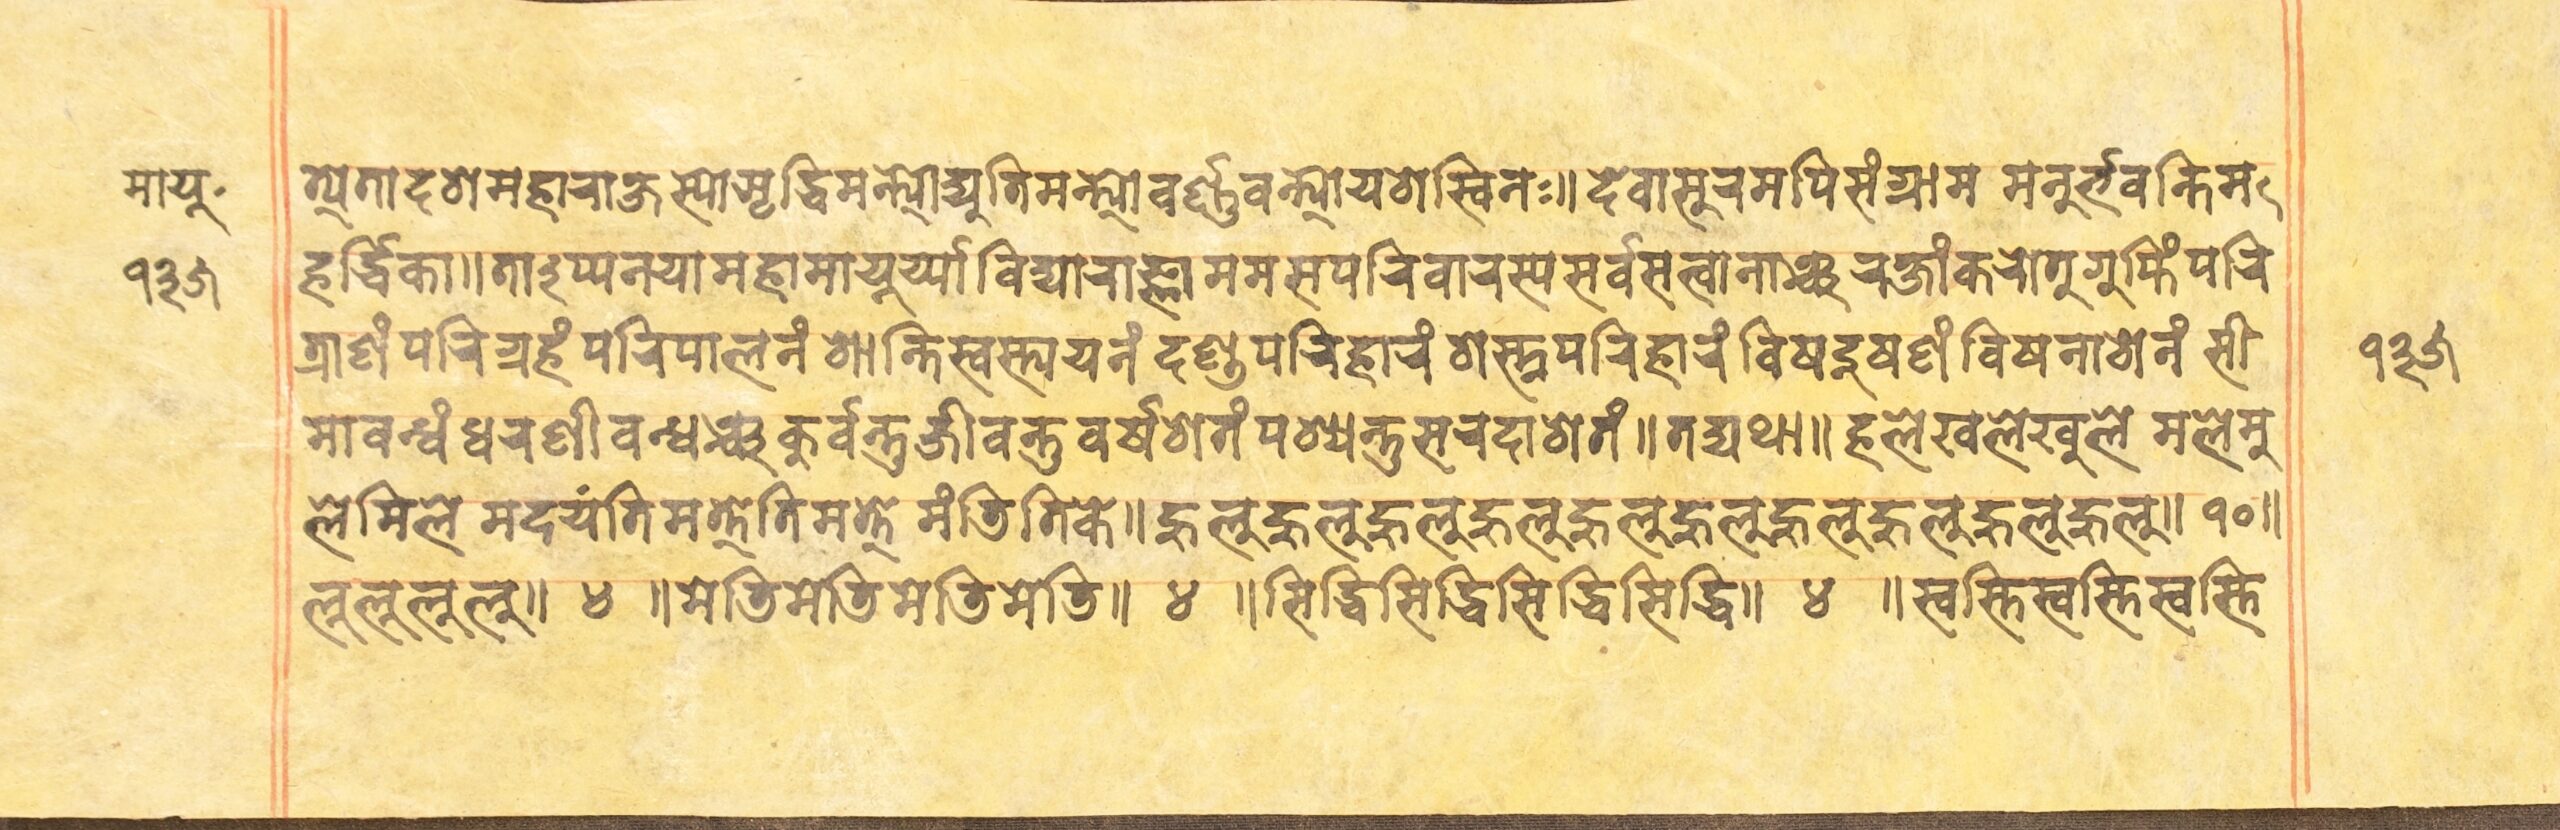 मायु॰
१३७
त्येतादशमहाराजस्यो मृद्धिमन्त्योद्युतिमन्त्यो वर्ण्णवन्त्योयशस्विनः॥ देवासुरमपिसंग्राम मनुर्भवन्तिम
हर्द्धिका॥ताइप्यनयामहामायुर्य्या विद्याराज्ञा ममसपरिवारस्य सर्वसत्वानाञ्च रक्षांकरोतुगुप्तिंपरि
त्राणंपरिग्रहंपरिपालनं शान्तिस्वस्त्ययनं दण्डपरिहारं शस्त्रपरिहारं विषदूषणं विषनाशनं सी
मावन्धंधरणीवन्धञ्च कुर्वन्तुजीवन्तु वर्षशतंपश्यन्तुसरदाशतं॥तद्यथा॥हलेखलेखुले मलेमु
लेमिले मदयंतिमत्तेतिमत्ते मंतितिके॥हुलुहुलुहुलुहुलुहुलुहुलुहुलुहुलुहुलुहुलु॥१०॥
लुलुलुलु॥ ४ ॥मेतिमेतिमेतिमेति॥ ४ ॥सिद्धिसिद्धिसिद्धिसिद्धि॥ ४ ॥स्वस्तिस्वस्तिस्वस्ति
१३७